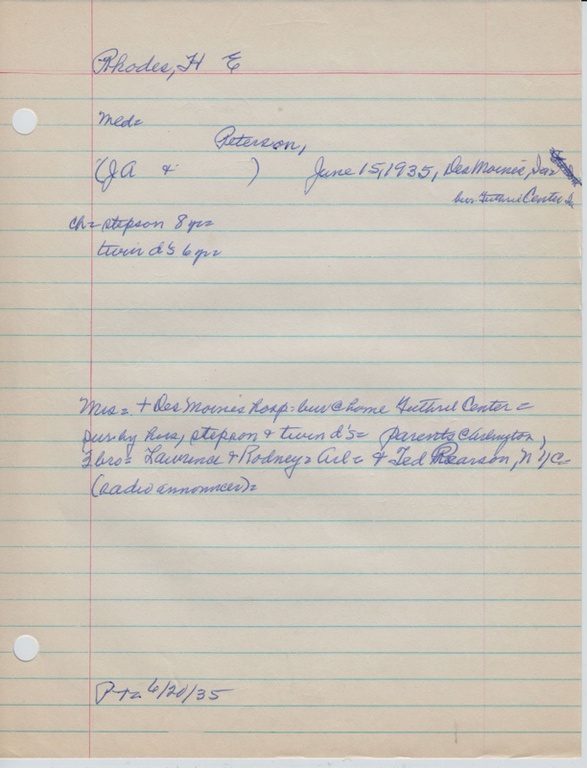 Rhodes, H E
Med=
Peterson,
(JA & ) June 15, 1935, Des Moines, Ia=
bur. Guthrie Center Ia
ch= stepson 8 yr=
twin d's 6 yr=
Mrs= + Des Moines hosp= bur @ home Guthrie Center =
surv by hus, stepson & twin d's= parents @ Arlington,
3 bro= Lawrence & Rodney= Arl= & Ted Pearson, NYC=
(radio announcer)=
6/20/35